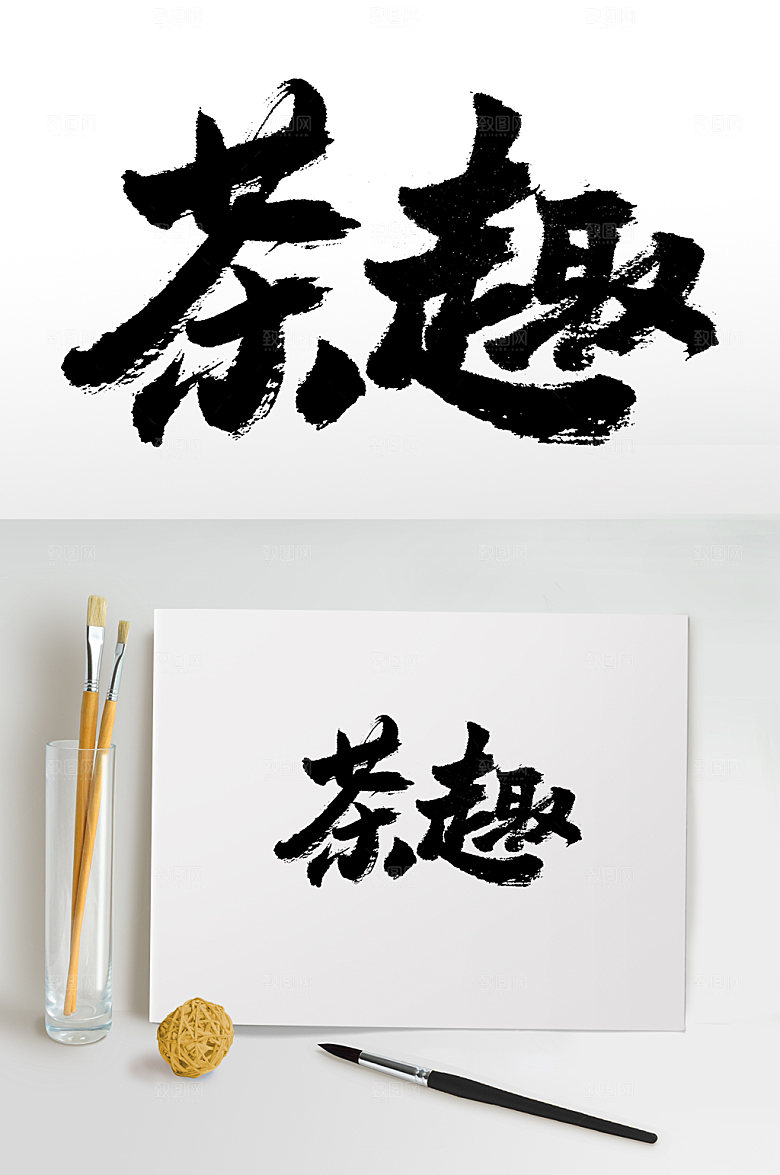 茶趣
茶趣